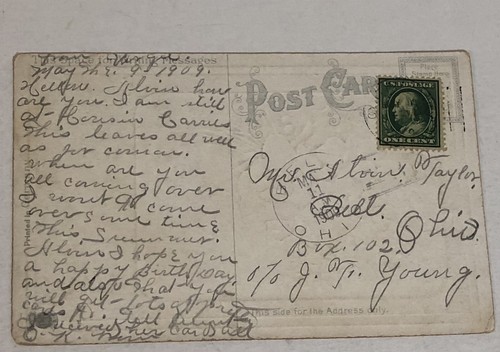 This Space for Writing Messages
May the 9th 1909.
Hellow. Alvin how
are you. I am still
at Cousin Carries
This leaves all well
as for common.
when are you
all coming over
want to come
over some time
This Summer.
Alvin I hope you
a happy Birth Day
and also that you
will get lots of
cards
POST CARD
Place
Stamp Here
U.S. POSTAGE
ONE CENT
Mr Alvin. Taylor
Ohio.
Box. 102.
c/o J. F. Young.
MAY
11
1909
OHIO
This side for the Address only.
Printed in